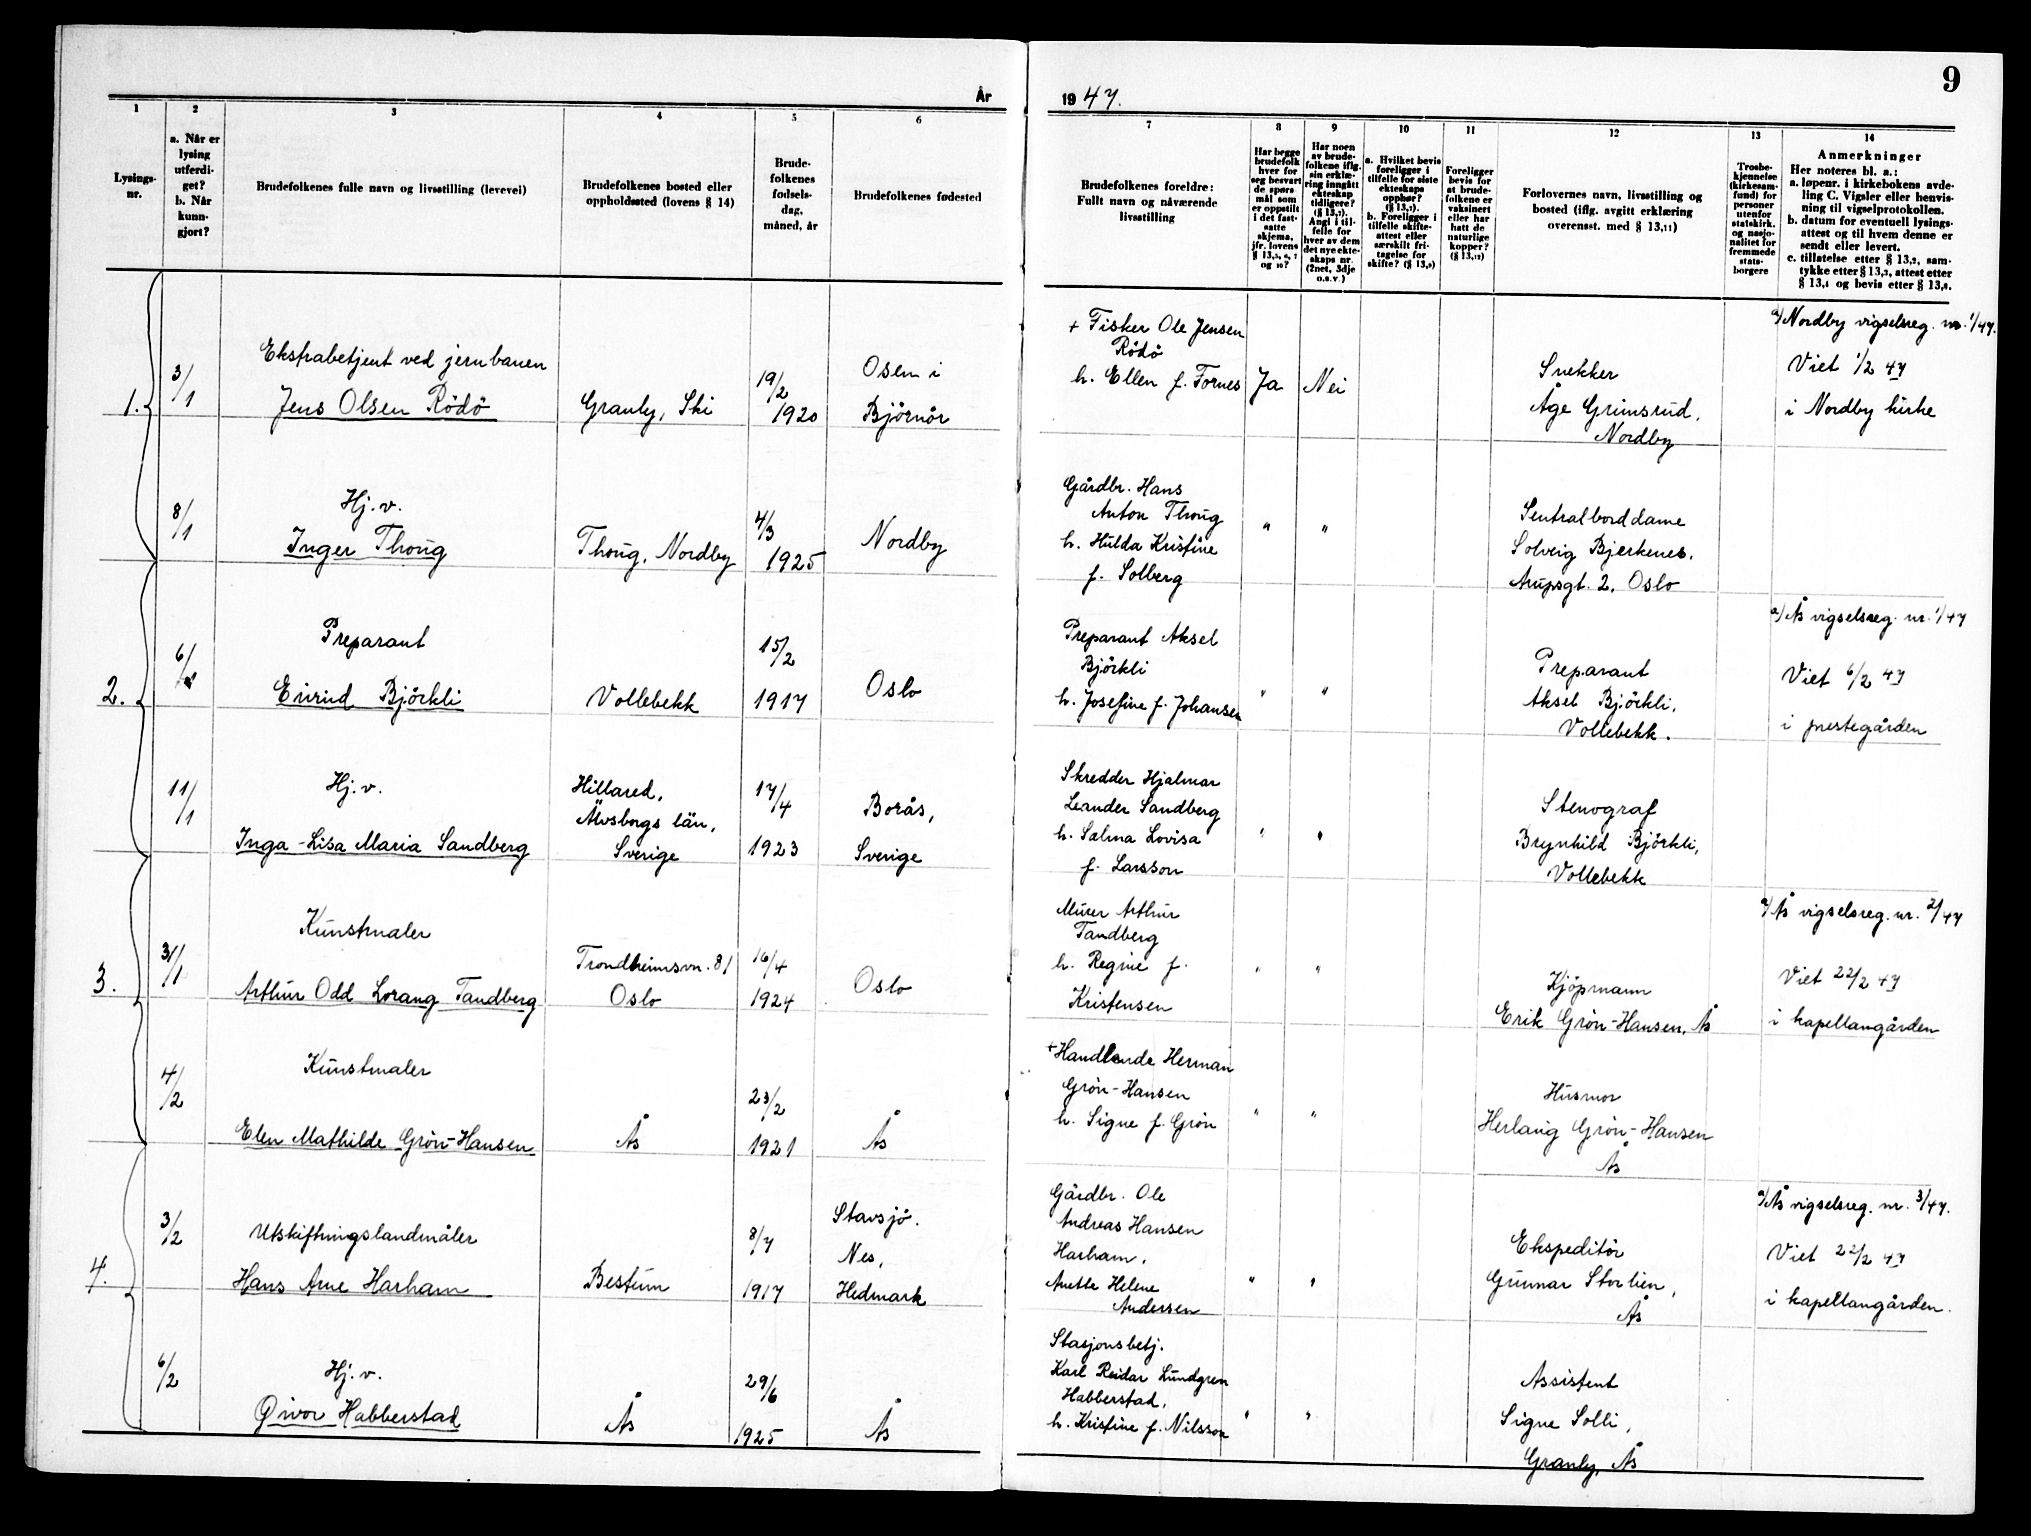 9
År
19 47.
1
2
3
4
5
6
7
8
9
10
11
12
13
14
Lysings-
nr.
a. Når er
lysing
utferdi-
get?
b. Når
kunn-
gjort?
Brudefolkenes fulle navn og livsstilling (levevei)
Brudefolkenes bosted eller
oppholdssted (lovens § 14)
Brude-
folkenes
fødsels-
dag,
måned, år
Brudefolkenes fødested
Brudefolkenes foreldre:
Fullt navn og nåværende
livsstilling
Har begge
brudefolk
hver for
seg besvart
de spørs
mål som
er oppstilt
i det fast-
satte
skjema,
jfr. lovens
§ 13,5, 6, 7
og 10?
Har noen
av brude-
folkene iflg.
sin erklæ-
ring inngått
ekteskap
tidligere?
(§ 13,7).
Angi i til-
felle for
hver av dem
det nye ekte-
skaps nr.
(2net, 3dje
o.s.v.)
a. Hvilket bevis
foreligger i
tilfelle for siste
ekteskaps
opphør?
(§ 13,7).
b. Foreligger i
tilfelle skifte-
attest eller
særskilt fri-
tagelse for
skifte? (§ 13,8)
Foreligger
bevis for
at brude-
folkene er
vaksinert
eller har
hatt de
naturlige
kopper?
(§ 13,12)
Forlovernes navn, livsstilling og
bosted (iflg. avgitt erklæring
overensst. med § 13,11)
Trosbe-
kjennelse
(kirkesam-
fund) for
personer
utenfor
statskirk.
og nasjo-
nalitet for
fremmede
stats-
borgere
Anmerkninger
Her noteres bl. a.:
a. løpenr. i kirkebokens avde-
ling C. Vigsler eller henvis-
ning til vigselprotokollen.
b. datum for eventuell lysings-
attest og til hvem denne er
sendt eller levert.
c. tillatelse etter § 13,2, sam-
tykke etter § 13,3, attest etter
§ 13,4 og bevis etter § 13,8.
1.
3/1
Ekstrabetjent ved jernbanen
Jens Olsen Rödö
Granly, Ski
19/2
1920
Osen i
Björnör
+ Fisker Ole Jensen
Rödö
h. Ellen f. Fornes
Ja
Nei
Snekker
Åge Grimsrud,
Nordby
a/ Nordby vigselsreg. nr. 1/47.
Viet 1/2 47
i Nordby kirke
8/1
Hj.v.
Inger Thoug
Thoug, Nordby
4/3
1925
Nordby
Gårdbr. Hans
Anton Thoug
h. Hulda Kristine
f. Solberg
"
"
Sentralborddame
Solveig Bjerkenes,
Arupsgt. 2, Oslo
2.
6/1
Preparant
Eivind Björkli
Vollebekk
15/2
1917
Oslo
Preparant Aksel
Björkli
h. Josefine f. Johansen
"
"
Preparant
Aksel Björkli,
Vollebekk.
a/ Ås vigselsreg. nr. 1/47
Viet 6/2 47
i prestegården
11/1
Hj.v.
Inga-Lisa Maria Sandberg
Hillared,
Älvsborgs län,
Sverige
17/4
1923
Borås,
Sverige
Skredder Hjalmar
Leander Sandberg
h. Salma Lovisa
f. Larsson
"
"
Stenograf
Brynhild Björkli,
Vollebekk
3.
31/1
Kunstmaler
Arthur Odd Lorang Tandberg
Trondheimsvn. 81
Oslo
16/4
1924
Oslo
Murer Arthur
Tandberg
h. Regine f.
Kristensen
"
"
Kjöpmann
Erik Grön-Hansen, Ås
a/ Ås vigselsreg. nr. 2/47
Viet 22/2 47
i kapellangården
4/2
Kunstmaler
Elen Mathilde Grön-Hansen
Ås
23/2
1921
Ås
+ Handlende Herman
Grön-Hansen
h. Signe f. Grön
"
"
Husmor
Herlaug Grön-Hansen
Ås
4.
3/2
Utskiftningslandmåler
Hans Arne Harham
Bestum
8/7
1917
Stavsjö.
Nes,
Hedmark
Gårdbr. Ole
Andreas Hansen
Harham,
Anette Helene
Andersen
"
"
Ekspeditör
Gunnar Storlien,
Ås
a/ Ås vigselsreg. nr. 3/47.
Viet 22/2 47
i kapellangården.
6/2
Hj.v.
Eivor Habberstad
Ås
29/6
1925
Ås
Stasjonsbetj.
Karl Reidar Lundgren
Habberstad,
h. Kristine f. Nilsson
"
"
Assistent
Signe Solli,
Granly, Ås